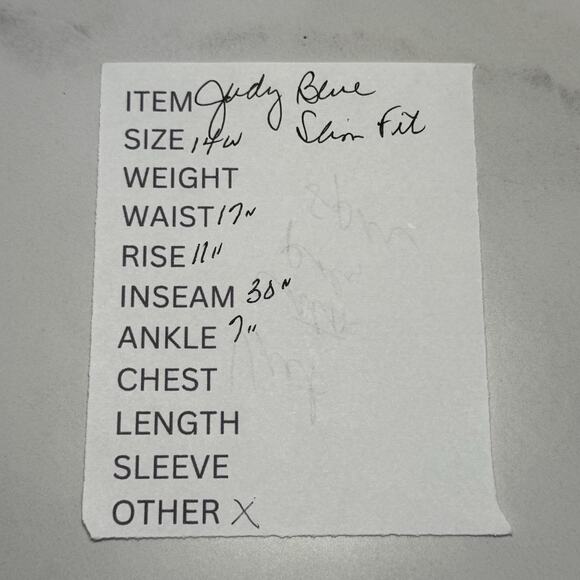 ITEM Judy Blue
SIZE 14W Slim Fit
WEIGHT
WAIST 17"
RISE 11"
INSEAM 30"
ANKLE 7"
CHEST
LENGTH
SLEEVE
OTHER X